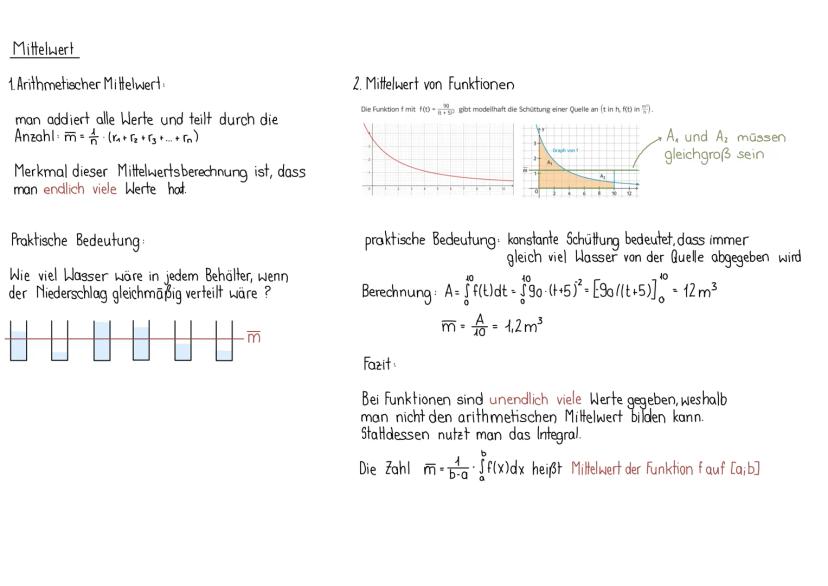 Mittelwert
1. Arithmetischer Mittelwert:
man addiert alle Werte und teilt durch die
Anzahl: m̅ = 1/n · (r₁ + r₂ + r₃ + ... + rₙ)
Merkmal dieser Mittelwertsberechnung ist, dass
man endlich viele Werte hat.
Praktische Bedeutung:
Wie viel Wasser wäre in jedem Behälter, wenn
der Niederschlag gleichmäßig verteilt wäre ?
m̅
2. Mittelwert von Funktionen
Die Funktion f mit f(t) = 90/(t + 5)² gibt modellhaft die Schüttung einer Quelle an (t in h, f(t) in m³/h).
Graph von f
A₁
A₂
A₁ und A₂ müssen
gleichgroß sein
praktische Bedeutung: konstante Schüttung bedeutet, dass immer
gleich viel Wasser von der Quelle abgegeben wird
Berechnung: A = ∫₀¹⁰ f(t)dt = ∫₀¹⁰ 90 · (t+5)² = [90/(t+5)]₀¹⁰ = 12 m³
m̅ = A/10 = 1,2 m³
Fazit:
Bei Funktionen sind unendlich viele Werte gegeben, weshalb
man nicht den arithmetischen Mittelwert bilden kann.
Stattdessen nutzt man das Integral.
Die Zahl m̅ = 1/b-a · ∫ₐᵇ f(x)dx heißt Mittelwert der Funktion f auf [a;b]